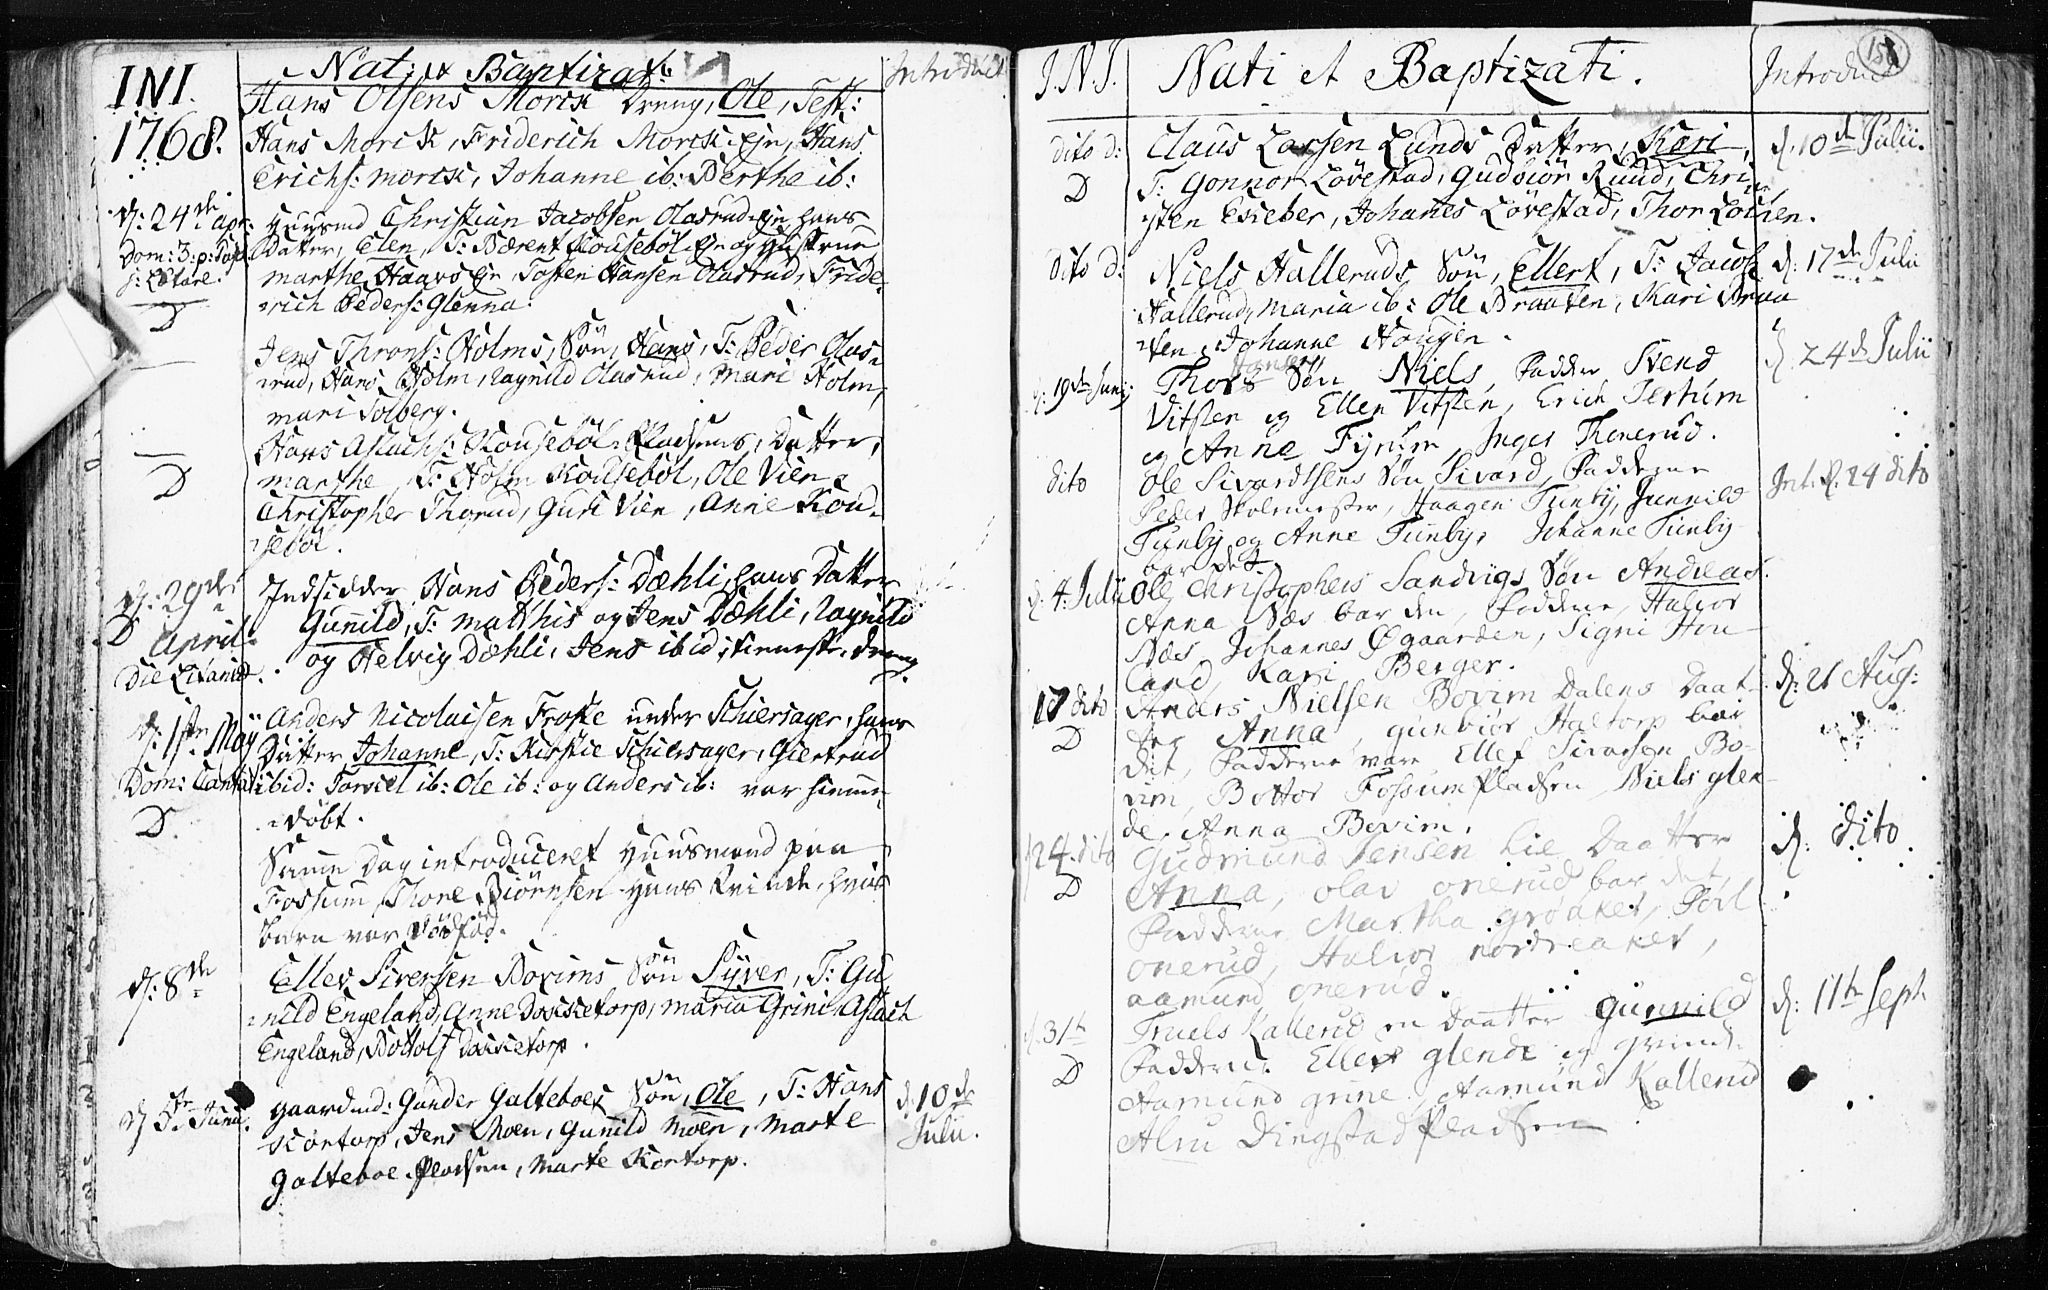 INI.
Nat: et Baptizat:
Introduct
1768.
Hans Olsens Morck Dreng, Ole, Test:
Hans Morck, Friderich Morck Eje, Hans
Erichs: morck, Johanne ib: Berthe ib:
d: 24de apr:
Dom: 3: p: Pasch
D
Huusmd Christian Jacobsen Olasrud Eje hans
Datter, Elen, T: Bærent Kouseböl Eje og Hustrue
marthe Haavs Eje Tosten Hansen Olasrud, Fride-
rich Peders: Glenna.
Jens Throns: Holms, Sön, Hans, T: Peder Olas-
rud, Hans Holm, Ragnild Olasrud, Mari Holm,
mari Solberg.
D
Hans Aslachs: Kouseböl Pladsens, Datter,
marthe, T: Holm Kouseböl, Ole Vien
Christopher Thorud, Guri Vien, Anne Kou-
seböl.
d: 29de
D April
Die Litaniæ
Indsidder Hans Peders: Dæhli, hans Datter
Gunild, T: matthis og Jens Dæhli, Ragnild
og Helvig Dæhli, Jens ibid, tieneste dreng
d: 1ste Maÿ
Dom: Cantate
D.
Anders Nicolaisen Froste under Schiersager, hans
Datter Johanne, T: Kirstie Schiersager, Giertrud
ibid: Torkiel ib: Ole ib: og Anders ib: var hiemme-
döbt.
Samme Dag introduceret Huusmand paa
Fossum Thore Biörnsen hans Qvinde, hvis
barn var Dödföd.
d: 8de
Ellev Siversen Bovims Sön Syver, T: Gu-
nild Engeland, Anne Dokketorp, Maria Grini Aslach
Engeland, Bottolf Dokketorp.
d 5te Junii.
Gaardmd: Gunder Galteboes Sön, Ole, T: Hans
Kortorp, Jens Moen, Gunild Moen, Marte
Galteboe Pladsen, Marte Kortorp.
d. 10de
Julii.
J.N.J.
Nati et Baptizati.
Introduct
dito d:
D
Claus Larsen Lunds Datter, Kari,
T: Gonnor Lövestad, Gudbiör Ruud, Chri-
sten Esieber, Johanes Lövestad, Thor Löcken.
d. 10de Julii.
dito d:
Niels Halleruds Sön, Ellert, T: Jacob
Hallerud, Maria ib: Ole Braaten, Kari Braa-
ten, Johanne Hougen.
d: 17de Julii
d: 19de Junij
Thors Hansen Sön Niels, Fadder Svend
Vitsten og Ellen Vitsten, Erich Tertum
og Anne Tynbÿ, Inger Thonerud.
d 24de Julii
dito
Ole Sivardtsens Sön Sivard, Fadderne
Peder Skolemester, Haagen Tunbÿ, Gunnild
Tunbÿ og Anne Tunby, Johanne Tunby
bar det
Int. d. 24 dito
d: 4: Julii
Ole Christophers Sandvigs Sön Andreas.
Anna Næs bar den, Fadderne, Halvor
Næs, Johannes Øgaarden, Signi Hou-
land, Kari Berger.
17 dito
D
Anders Nielsen Bovim Dalens Daat-
ter Anna, Gunbiör Haltorp bar
det, Fadderne vare Ellef Sivarsen Bo-
vim, Bottor Fossum Pladsen, Niels Glen-
de. Anna Bovim.
d: 21 Aug:
24. dito
D
Gudmund Jensen Lie Daatter
Anna, Olav Onerud bar det,
Fadderne Martha Grøaker, Poel
Onerud, Halvor Nordreaker,
Aamund Onerud.
d: dito
d. 31te
D
Truels Kallerud en Daatter Gunnild
Fadderne Ellef Glende og Qvinde
Aamund Grine, Aamund Kallerud
Alru Dingstad Pladsen
d: 11te Sept.